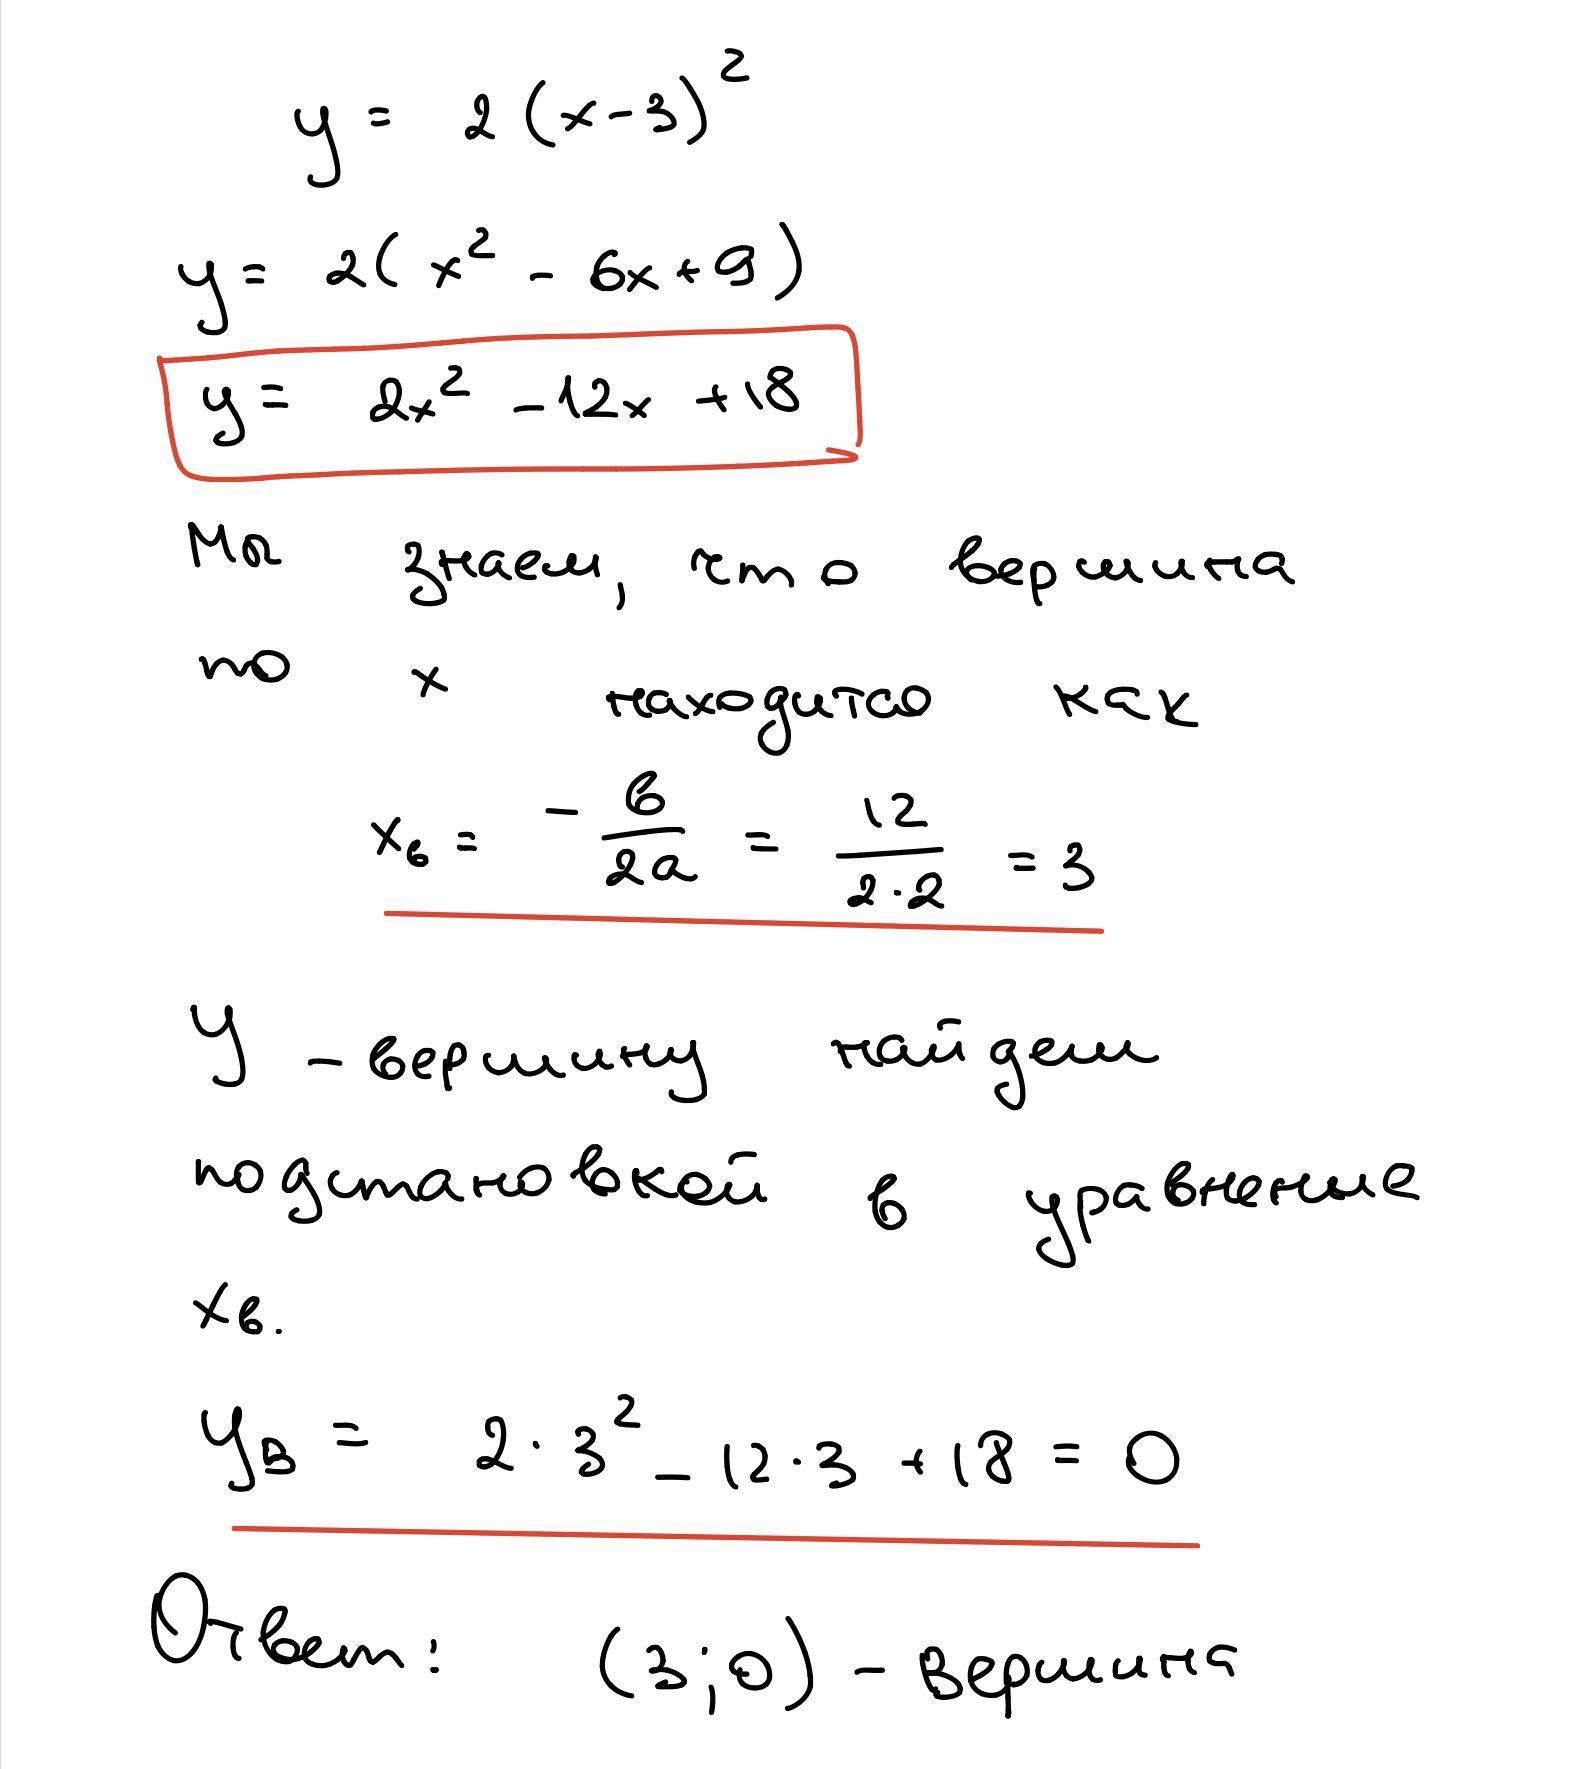 y = 2(x-3)²
y = 2(x² - 6x + 9)
y = 2x² - 12x + 18
Мы знаем, что вершина
по x находится как
xв = - в/2a = 12/2·2 = 3
У - вершину найдем
подстановкой в уравнение
xв.
yв = 2·3² - 12·3 + 18 = 0
Ответ: (3;0) - вершина